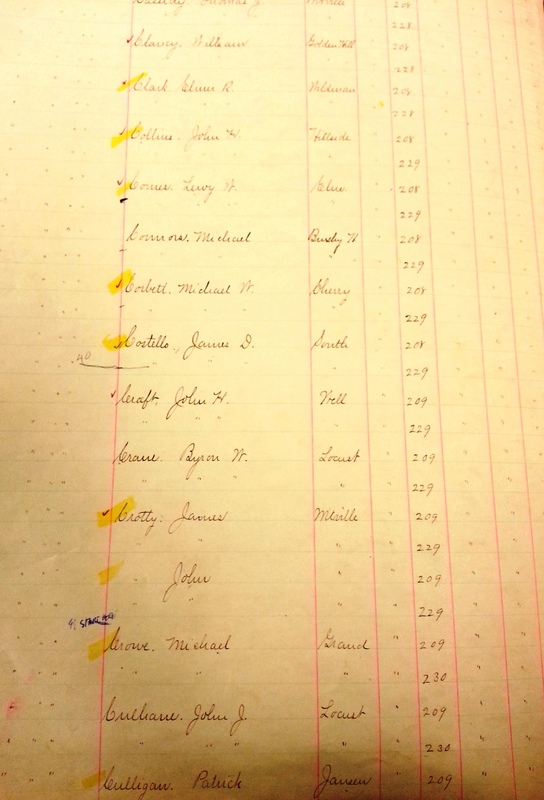 208
228
Clancy. William Golden Hill 208
228
Clark Elmer R. Wildman 208
228
Collins. John H. Hillside 208
" 229
Comes. Levy W. Elm 208
" 229
Connors. Michael 208
" 229
Corbett. Michael W. Cherry 208
" 229
Costello. James D. South 208
40
" 229
Craft. John H. Well 209
" " " 229
Crane Byron W. Locust 209
" " " 229
Crotty: James 209
" " 229
John " " 209
" " " 229
Crowe. Michael Grand " 209
" " " " 230
Culhane. John J. Locust " 209
" " " " 230
Culligan. Patrick Jansen " 209